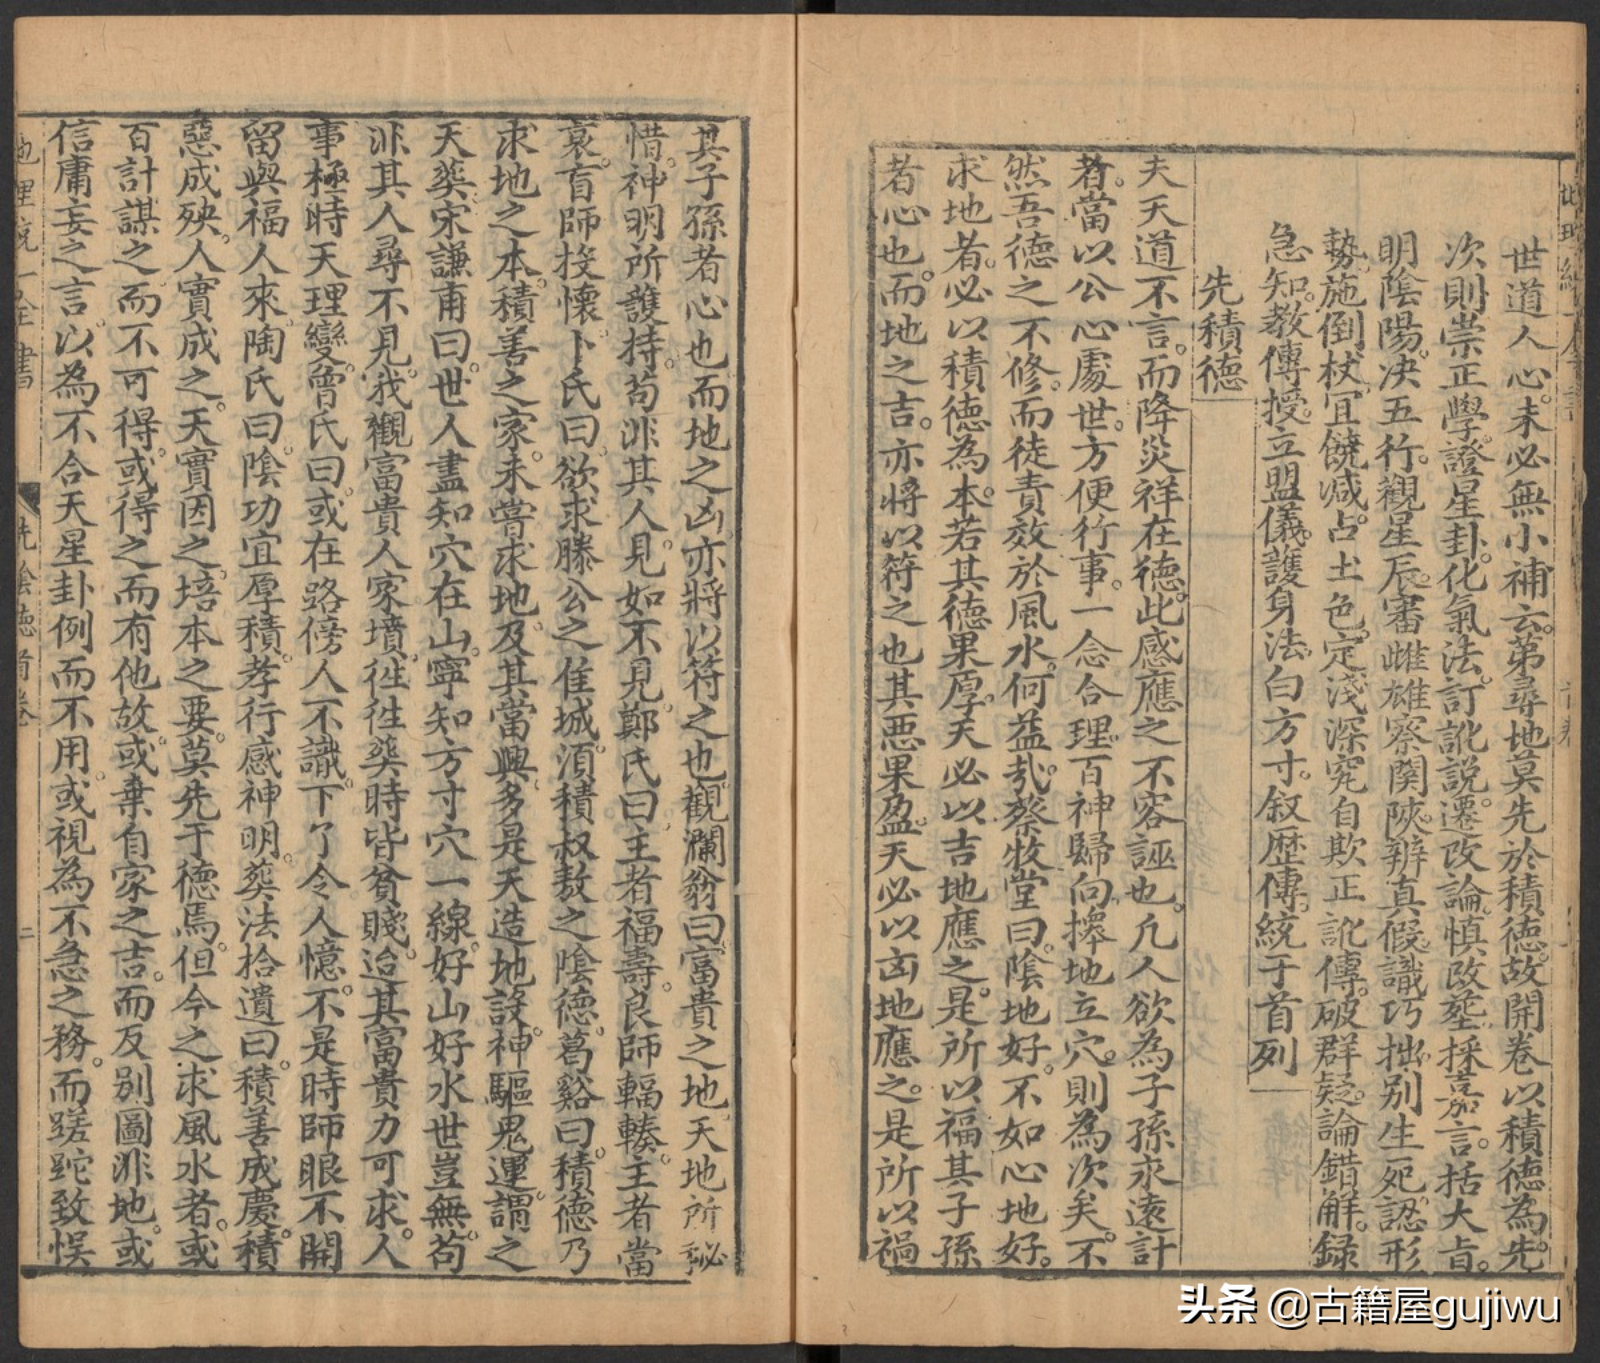 世道人心未必無小補云第尋地莫先於積德故開卷以積德為先
次則崇正學證星卦化氣法訂訛說遷改論慎改塟採嘉言括大旨
明陰陽決五行觀星辰審雌雄察闗陜辨真假識巧拙别生死認形
勢施倒杖冝饒减占土色定淺深究自欺正訛傳破群疑論錯解録
急知教傳授立盟儀護身法白方寸叙歴傳統于首列
先積德
夫天道不言而降災祥在德此感應之不容誣也凡人欲為子孫永遠計
者當以公心處世方便行事一念合理百神歸向擇地立穴則為次矣不
然吾德之不修而徒責效於風水何益㢤蔡牧堂曰隂地好不如心地好
求地者必以積德為本若其德果厚天必以吉地應之是所以福其子孫
者心也而地之吉亦將以符之也其悪果盈天必以凶地應之是所以禍
其子孫者心也而地之凶亦將以符之也觀瀾翁曰富貴之地天地所秘
惜神明所護持苟非其人見如不見鄭氏曰主者福壽良師輻輳主者當
衰盲師投懷卜氏曰欲求滕公之佳城須積叔敖之隂德葛谿曰積德乃
求地之本積善之家未嘗求地及其當興多是天造地設神驅鬼運謂之
天𦵏宋謙甫曰世人盡知穴在山寧知方寸穴一線好山好水世豈無苟
非其人尋不見我觀富貴人家墳徃徃𦵏時皆貧賤迨其富貴力可求人
事極時天理變曾氏曰或在路傍人不識下了令人憶不是時師眼不開
留與福人來陶氏曰陰功宜厚積孝行感神明𦵏法拾遺曰積善成慶積
惡成殃人實成之天實因之培本之要莫先于德焉但今之求風水者或
百計謀之而不可得或得之而有他故或棄自家之吉而反别圖非地或
信庸妄之言以為不合天星卦例而不用或視為不急之務而蹉跎致悞
地理統一全書
先隂德 首卷
二
头条 @古籍屋gujiwu